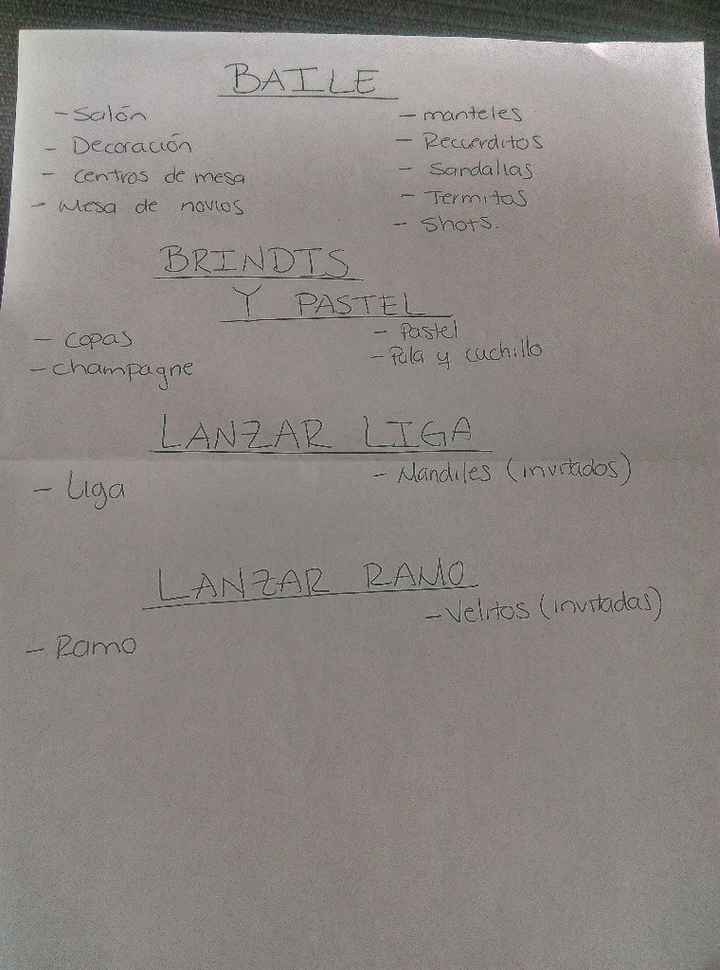 BAILE
- Salón
- Decoración
- centros de mesa
- Mesa de novios
- manteles
- Recuerditos
- Sandalias
- Termitas
- Shots.
BRINDIS
Y PASTEL
- copas
- champagne
- Pastel
- Pala y cuchillo
LANZAR LIGA
- Liga
- Mandiles (invitados)
LANZAR RAMO
- Ramo
- Velitos (invitadas)